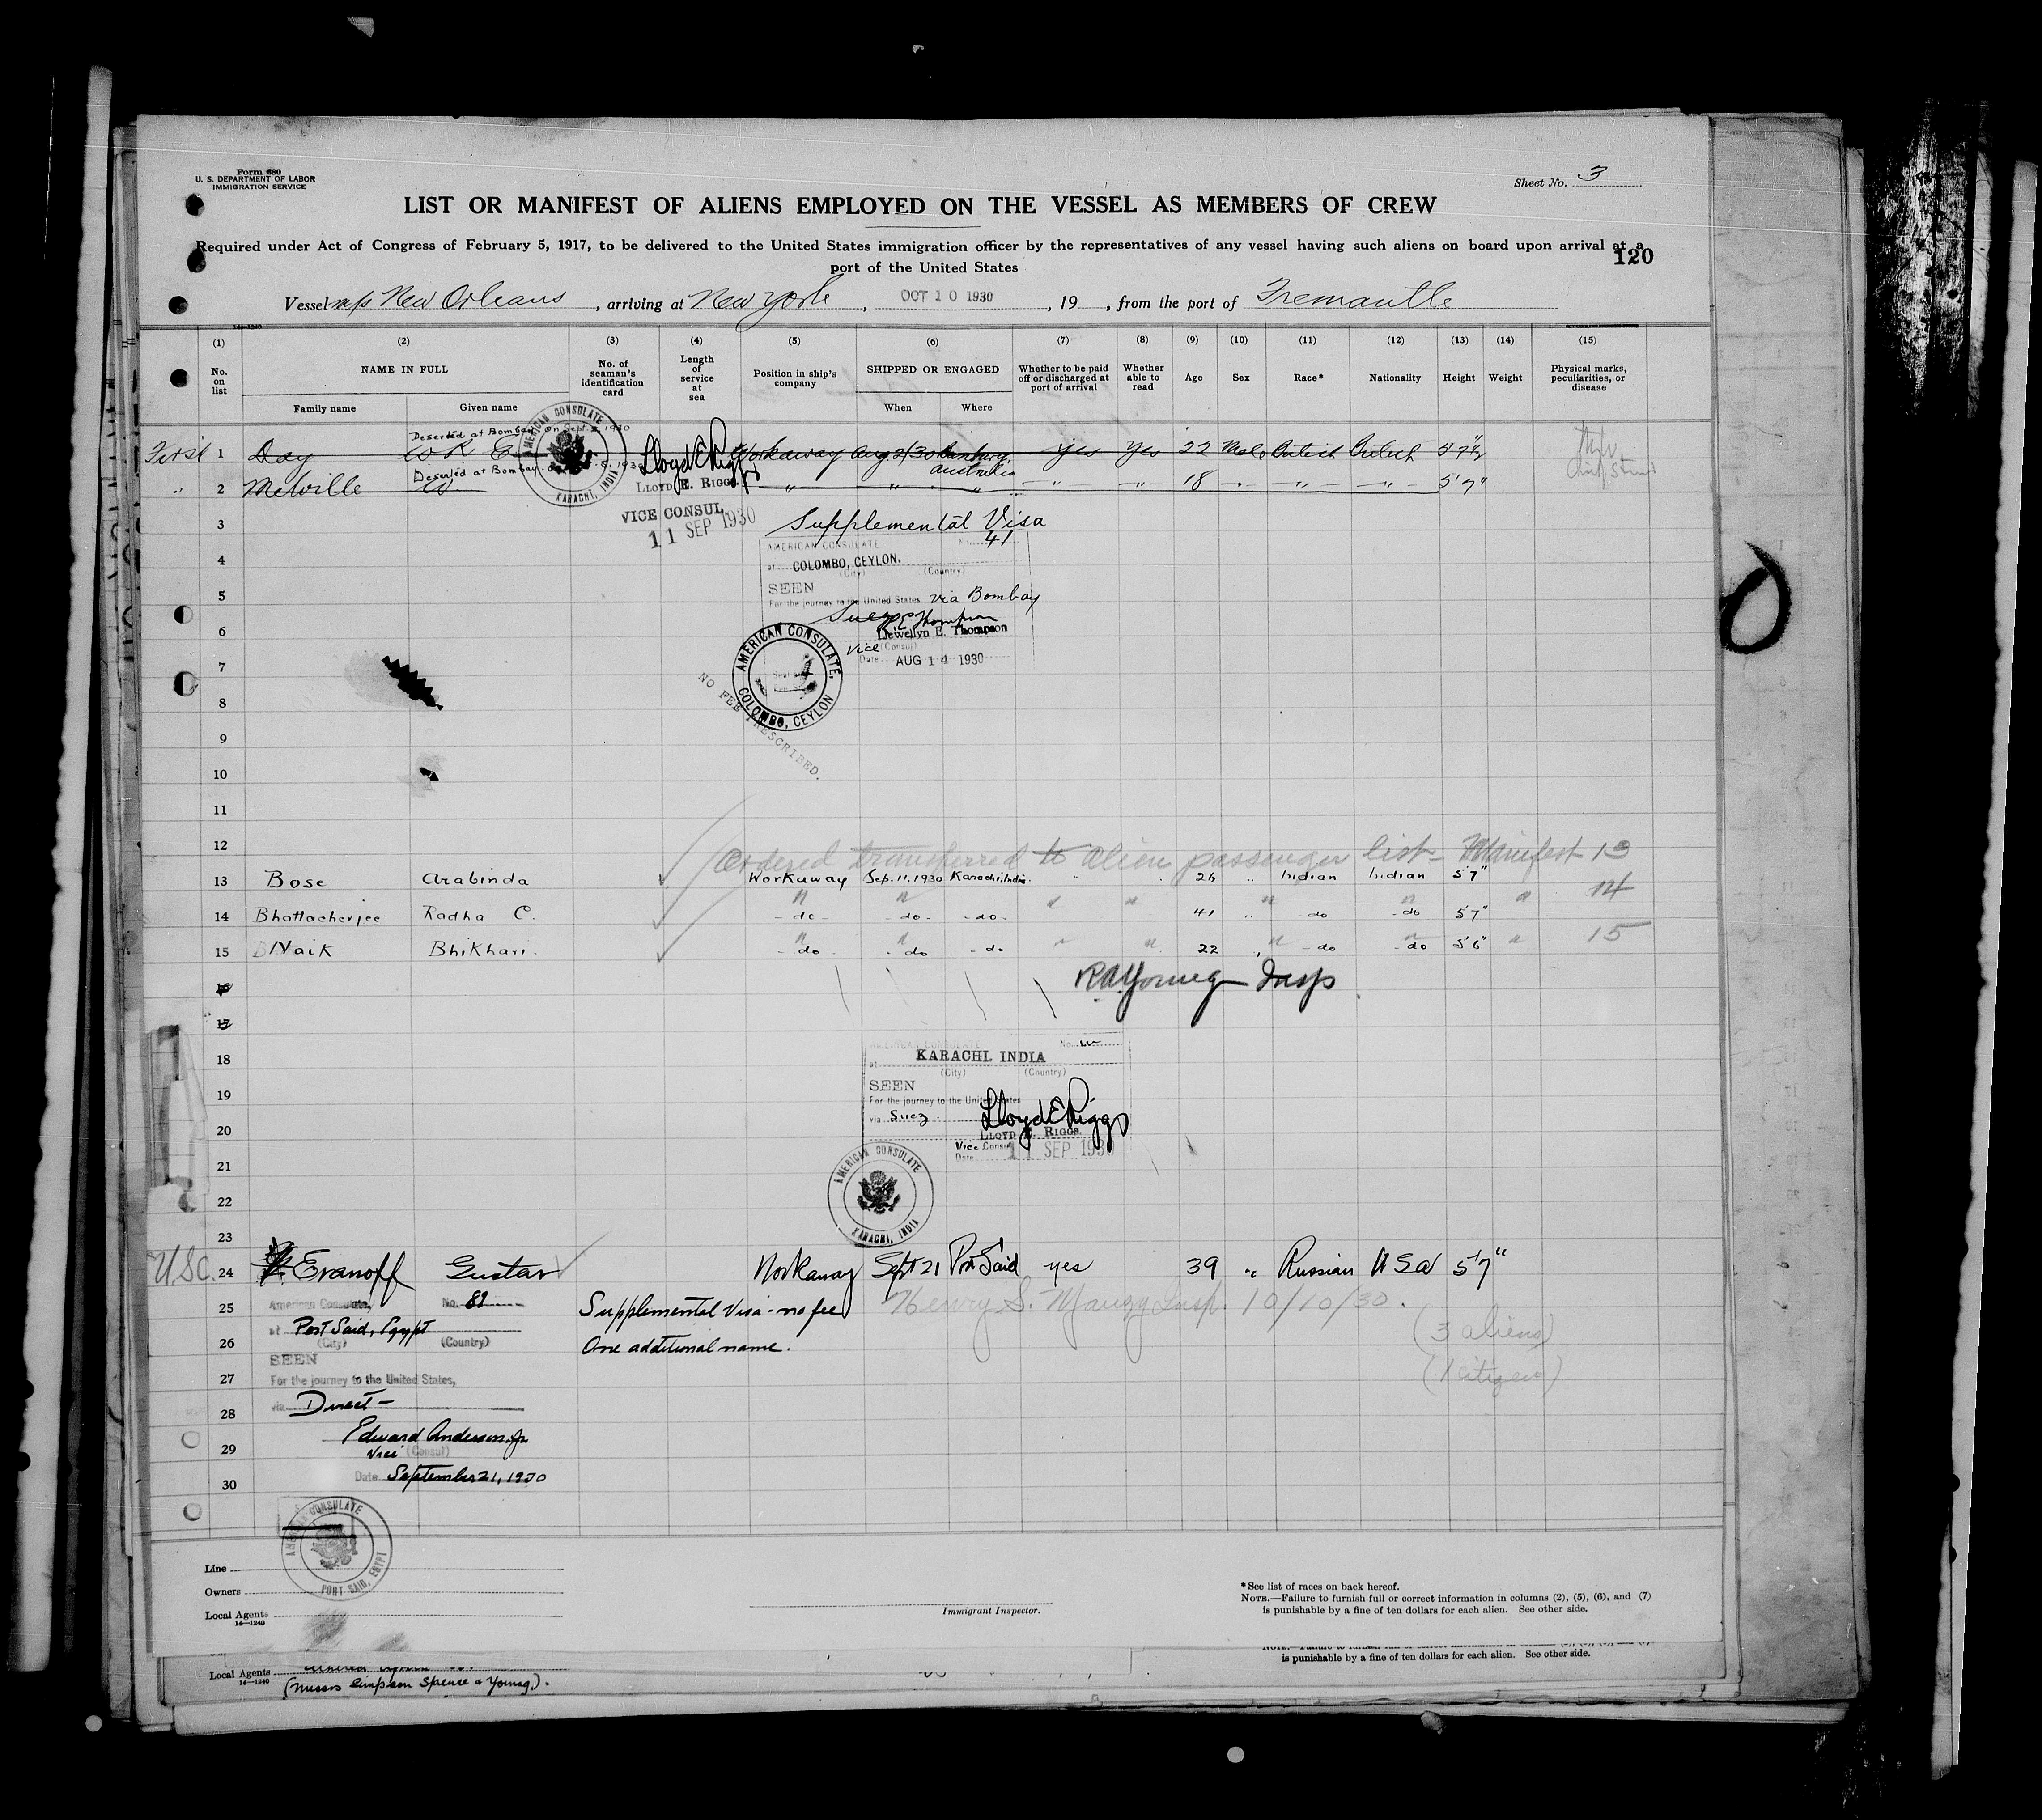 Form 680
U. S. DEPARTMENT OF LABOR
IMMIGRATION SERVICE
Sheet No. 3
LIST OR MANIFEST OF ALIENS EMPLOYED ON THE VESSEL AS MEMBERS OF CREW
Required under Act of Congress of February 5, 1917, to be delivered to the United States immigration officer by the representatives of any vessel having such aliens on board upon arrival at a
port of the United States
120
Vessel m/s New Orleans, arriving at New York, OCT 10 1930, 19, from the port of Fremantle
14—1240
(1) (2) (3) (4) (5) (6) (7) (8) (9) (10) (11) (12) (13) (14) (15)
No. on list
NAME IN FULL
Family name
Given name
No. of seaman's identification card
Length of service at sea
Position in ship's company
SHIPPED OR ENGAGED
When
Where
Whether to be paid off or discharged at port of arrival
Whether able to read
Age
Sex
Race*
Nationality
Height
Weight
Physical marks, peculiarities, or disease
Deserted at Bombay on Sept. 1930
First 1 Day W R E Workaway Aug 2/30 Bunbury, Australia yes yes 22 Male British British 5'7½"
Deserted at Bombay 1930
" 2 Melville " " " " " 18 " " " 5'7"
AMERICAN CONSULATE KARACHI, INDIA
Lloyd E Riggs
LLOYD E. RIGGS.
VICE CONSUL
11 SEP 1930
3 Supplemental Visa
AMERICAN CONSULATE No. 41
4 at COLOMBO, CEYLON.
(City) (Country)
SEEN
5 For the journey to the United States via Bombay
Suez
6 Llewellyn E. Thompson
Vice (Consul)
7 Date AUG 14 1930
AMERICAN CONSULATE, COLOMBO, CEYLON
NO FEE PRESCRIBED.
8
9
10
11
12
Ordered transferred to alien passenger list - Manifest 13
13 Bose Arabinda Workaway Sep. 11. 1930 Karachi, India " " 26 " Indian Indian 5'7"
14 Bhattacherjee Radha C. - do - - do - - do - " " 41 " - do - do 5'7" " 14
15 Naik Bhikhari. - do - do - do " " 22 " - do - do 5'6" " 15
16
R A Young Insp
17
18
AMERICAN CONSULATE No.
at KARACHI. INDIA
(City) (Country)
SEEN
19 For the journey to the United States
via Suez
Lloyd E Riggs
20 LLOYD E. RIGGS.
Vice Consul
Date 11 SEP 1930
21
AMERICAN CONSULATE KARACHI, INDIA
22
23
U.S.C. 24 Evanoff Gustav Workaway Sept 21 Port Said yes 39 " Russian U S A 5'7"
25 American Consulate, No. 82 Supplemental Visa - no fee Henry S. Insp. 10/10/30.
at Port Said, Egypt
(City) (Country)
(3 aliens)
26 One additional name.
SEEN
(1 citizen)
27 For the journey to the United States,
28 via Direct -
Edward Anderson, Jr.
29 Vice (Consul)
Date September 21, 1930
30
AMERICAN CONSULATE PORT SAID, EGYPT
Line
Owners
Local Agents
14—1240
Immigrant Inspector.
*See list of races on back hereof.
NOTE.—Failure to furnish full or correct information in columns (2), (5), (6), and (7)
is punishable by a fine of ten dollars for each alien. See other side.
is punishable by a fine of ten dollars for each alien. See other side.
Local Agents
14—1240
(Messrs Simpson Spence & Young).